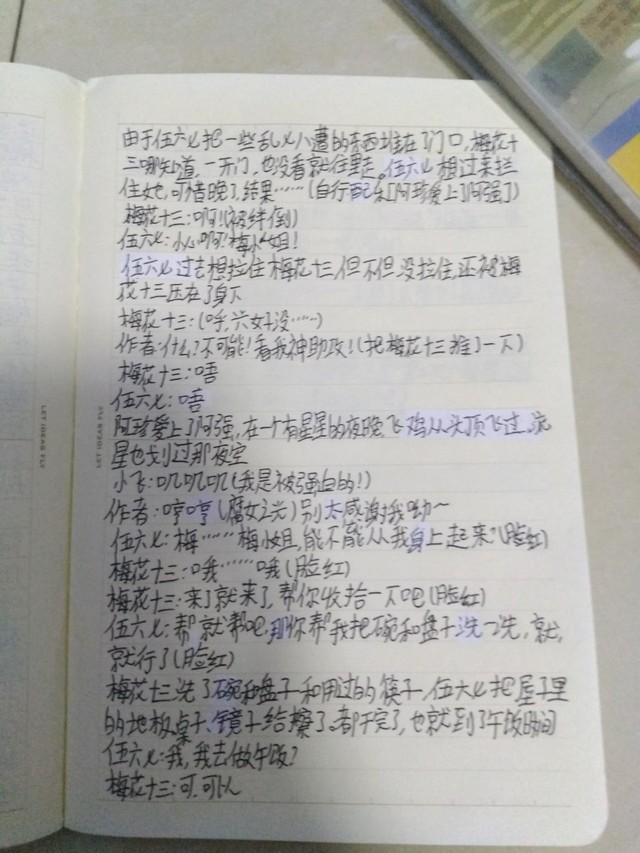 由于伍六七把一些乱七八遭的东西堆在了门口,梅花十
三哪知道,一开门,也没看就往里走。伍六七想过来拦
住她,可惜晚了,结果……(自行配乐[阿珍爱上了阿强])
梅花十三:啊!(被绊倒)
伍六七:小心啊!梅小姐!
伍六七过去想拉住梅花十三,但不但没拉住,还被梅
花十三压在了身下
梅花十三:(呼,六女子没……)
作者:什么?不可能!看我神助攻!(把梅花十三推了一下)
梅花十三:唔
伍六七:唔
阿珍爱上了阿强,在一个有星星的夜晚,飞鸡从头顶飞过,流
星也划过那夜空
小飞:叽叽叽叽(我是被强迫的!)
作者:哼哼(腐女之光)别太感谢我呦~
伍六七:梅……梅小姐,能不能从我身上起来?(脸红)
梅花十三:哦……哦(脸红)
梅花十三:来了就来了,帮你收拾一下吧(脸红)
伍六七:帮就帮吧,那你帮我把碗和盘子洗一洗,就,
就行了(脸红)
梅花十三洗了碗和盘子和用过的筷子,伍六七把屋子里
的地板、桌子、镜子给擦了。都干完了,也就到了午饭时间
伍六七:我,我去做午饭?
梅花十三:可,可以
LET IDEAS FLY
LET IDEAS FLY